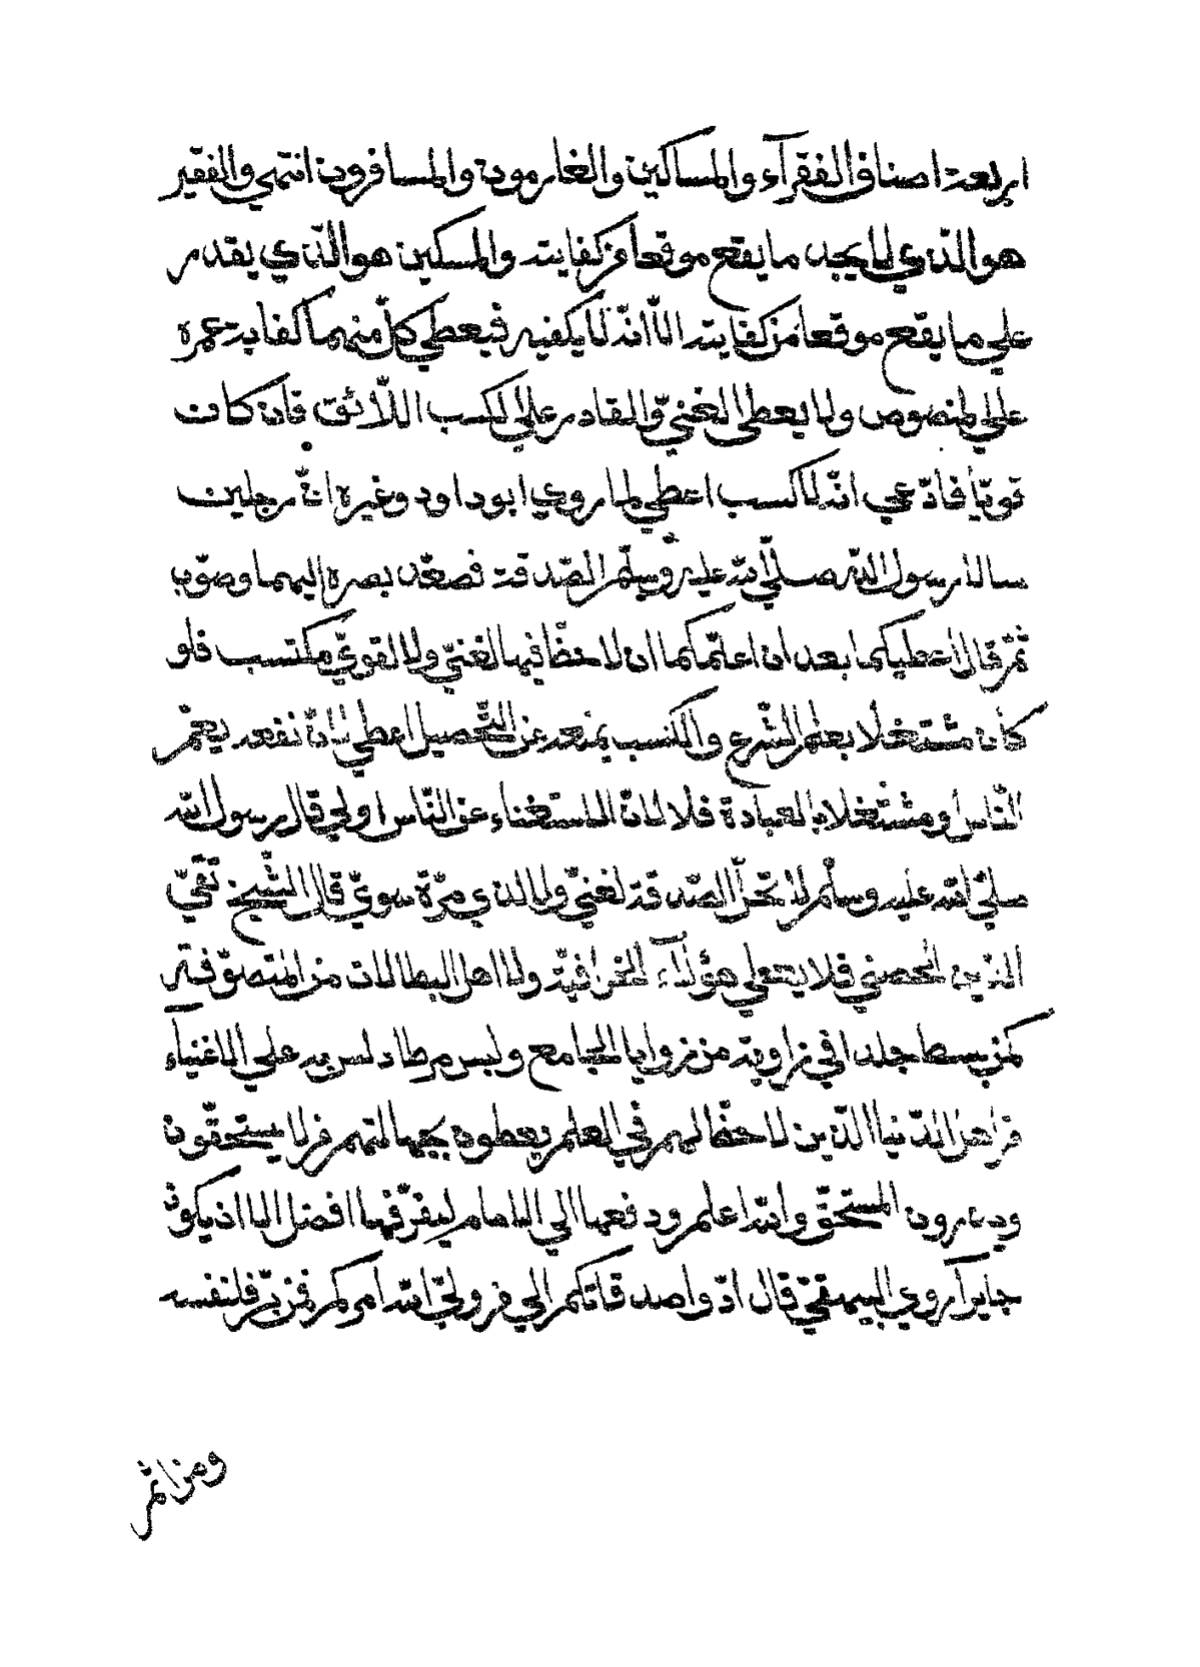 اربعة اصناف الفقرآء والمساكين والغارمون والمسافرون انتهى والفقير
هو الذي لا يجد ما يقع موقعا من كفايته والمسكين هو الذي يقدر
علي ما يقع موقعا من كفايته الا انه لا يكفيه فيعطي كل منهما كفاية عمره
علي المنصوص ولا يعطى الغني والقادر علي الكسب اللائق فان كان
قويا فادعي انه لا كسب اعطي لما روي ابو داود وغيره ان رجلين
سالا رسول الله صلي الله عليه وسلم الصدقة فصعد بصره اليهما وصوب
ثم قال اعطيكما بعد ان اعلمكما ان لا حظ فيها لغني ولا لقوي مكتسب فلو
كان مشتغلا بعلم الشرع والكسب يمنعه عن التحصيل اعطي لان نفعه يعم
الناس او مشتغلا بالعبادة فلا لان الاستغناء عن الناس اولي قال رسول الله
صلي الله عليه وسلم لا تحل الصدقة لغني ولا لذي مرة سوي قال الشيخ تقي
الدين الحصني فلا يعطي هؤلآء الحرافية ولا اهل البطالات من المتصوفة
كمن بسط جلدا في زاوية من زوايا الجامع ولبس مرطا دلس به علي الاغنيآء
من اهل الدنيا الذين لا حظ لهم في العلم يعطون بجهالتهم من لا يستحقون
ويذرون المستحق والله اعلم ودفعها الي الامام ليفرقها افضل الا ان يكون
جايرا روي البيهقي قال ادوا صدقاتكم الي من ولي الله امركم فمن بر فلنفسه
ومن اثم